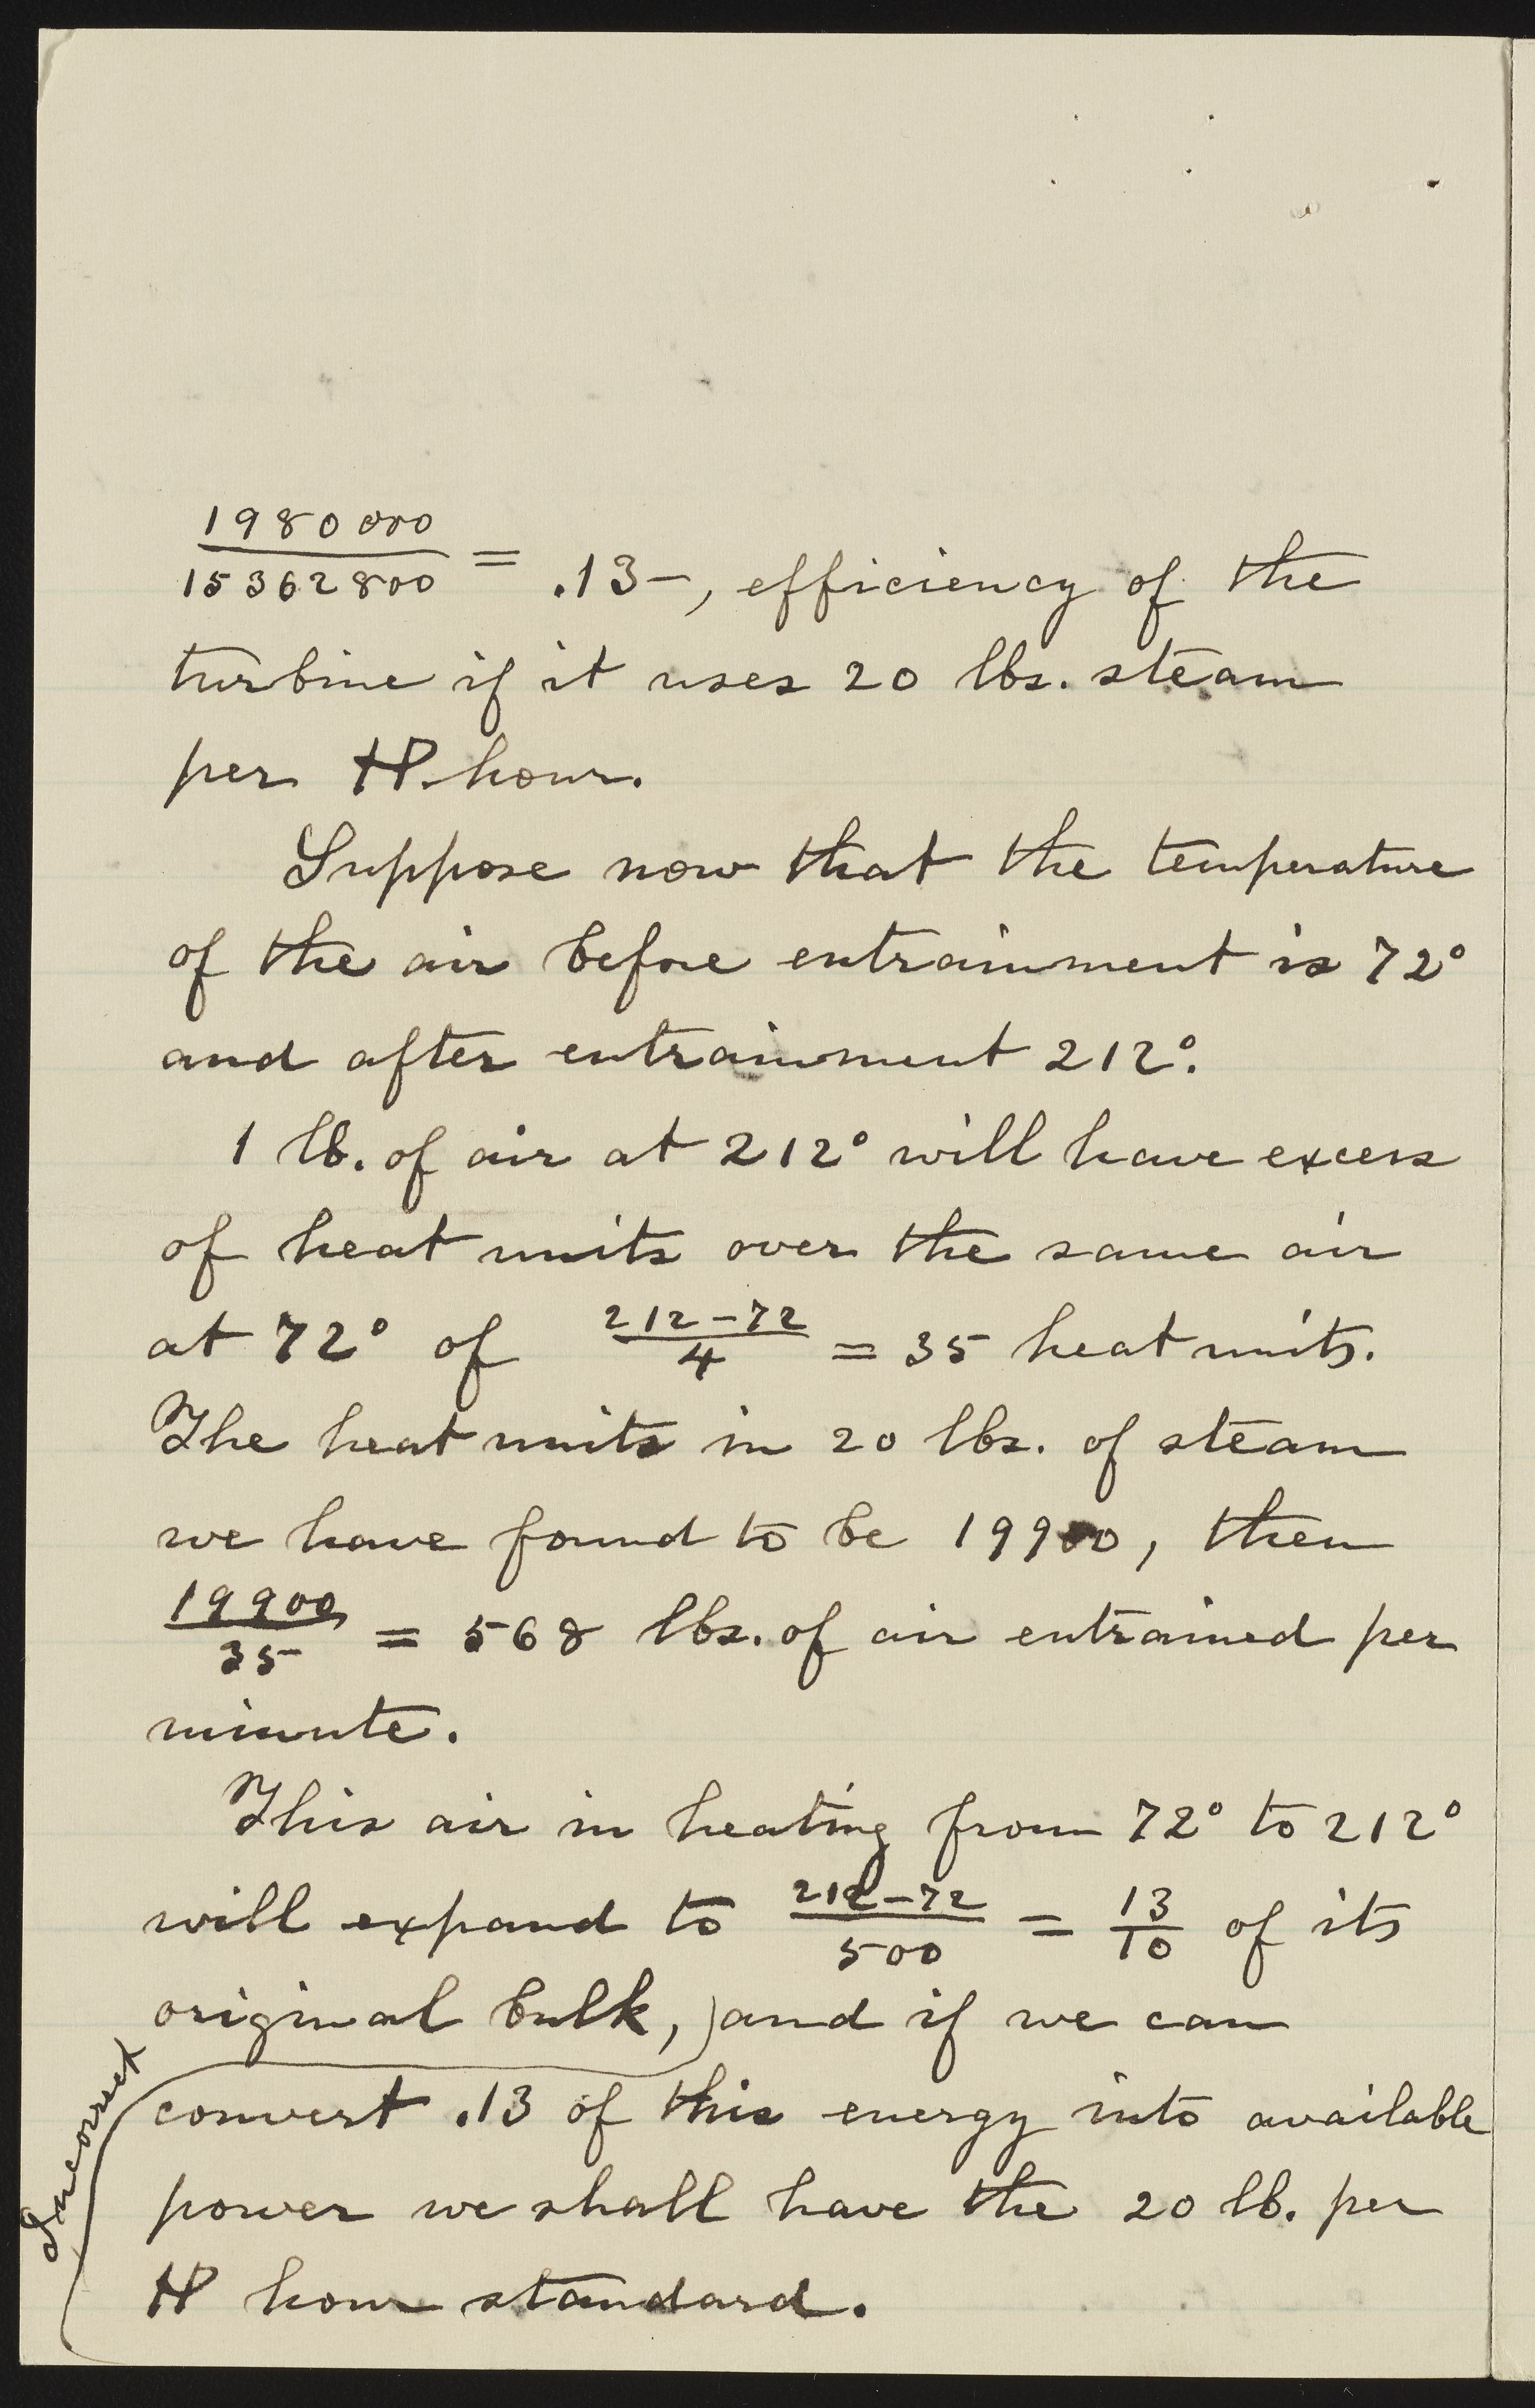 1980000
/15362800 = .13-, efficiency of the
turbine if it uses 20 lbs. steam
per HP. hour.
Suppose now that the temperature
of the air before entrainment is 72°
and after entrainment 212°.
1 lb. of air at 212° will have excess
of heat units over the same air
at 72° of 212-72/4 = 35 heat units.
The heat units in 20 lbs. of steam
we have found to be 19900, then
19900/35 = 568 lbs. of air entrained per
minute.
This air in heating from 72° to 212°
will expand to 212-72/500 = 13/10 of its
original bulk,) and if we can
convert .13 of this energy into available
power we shall have the 20 lb. per
HP hour standard.
Incorrect